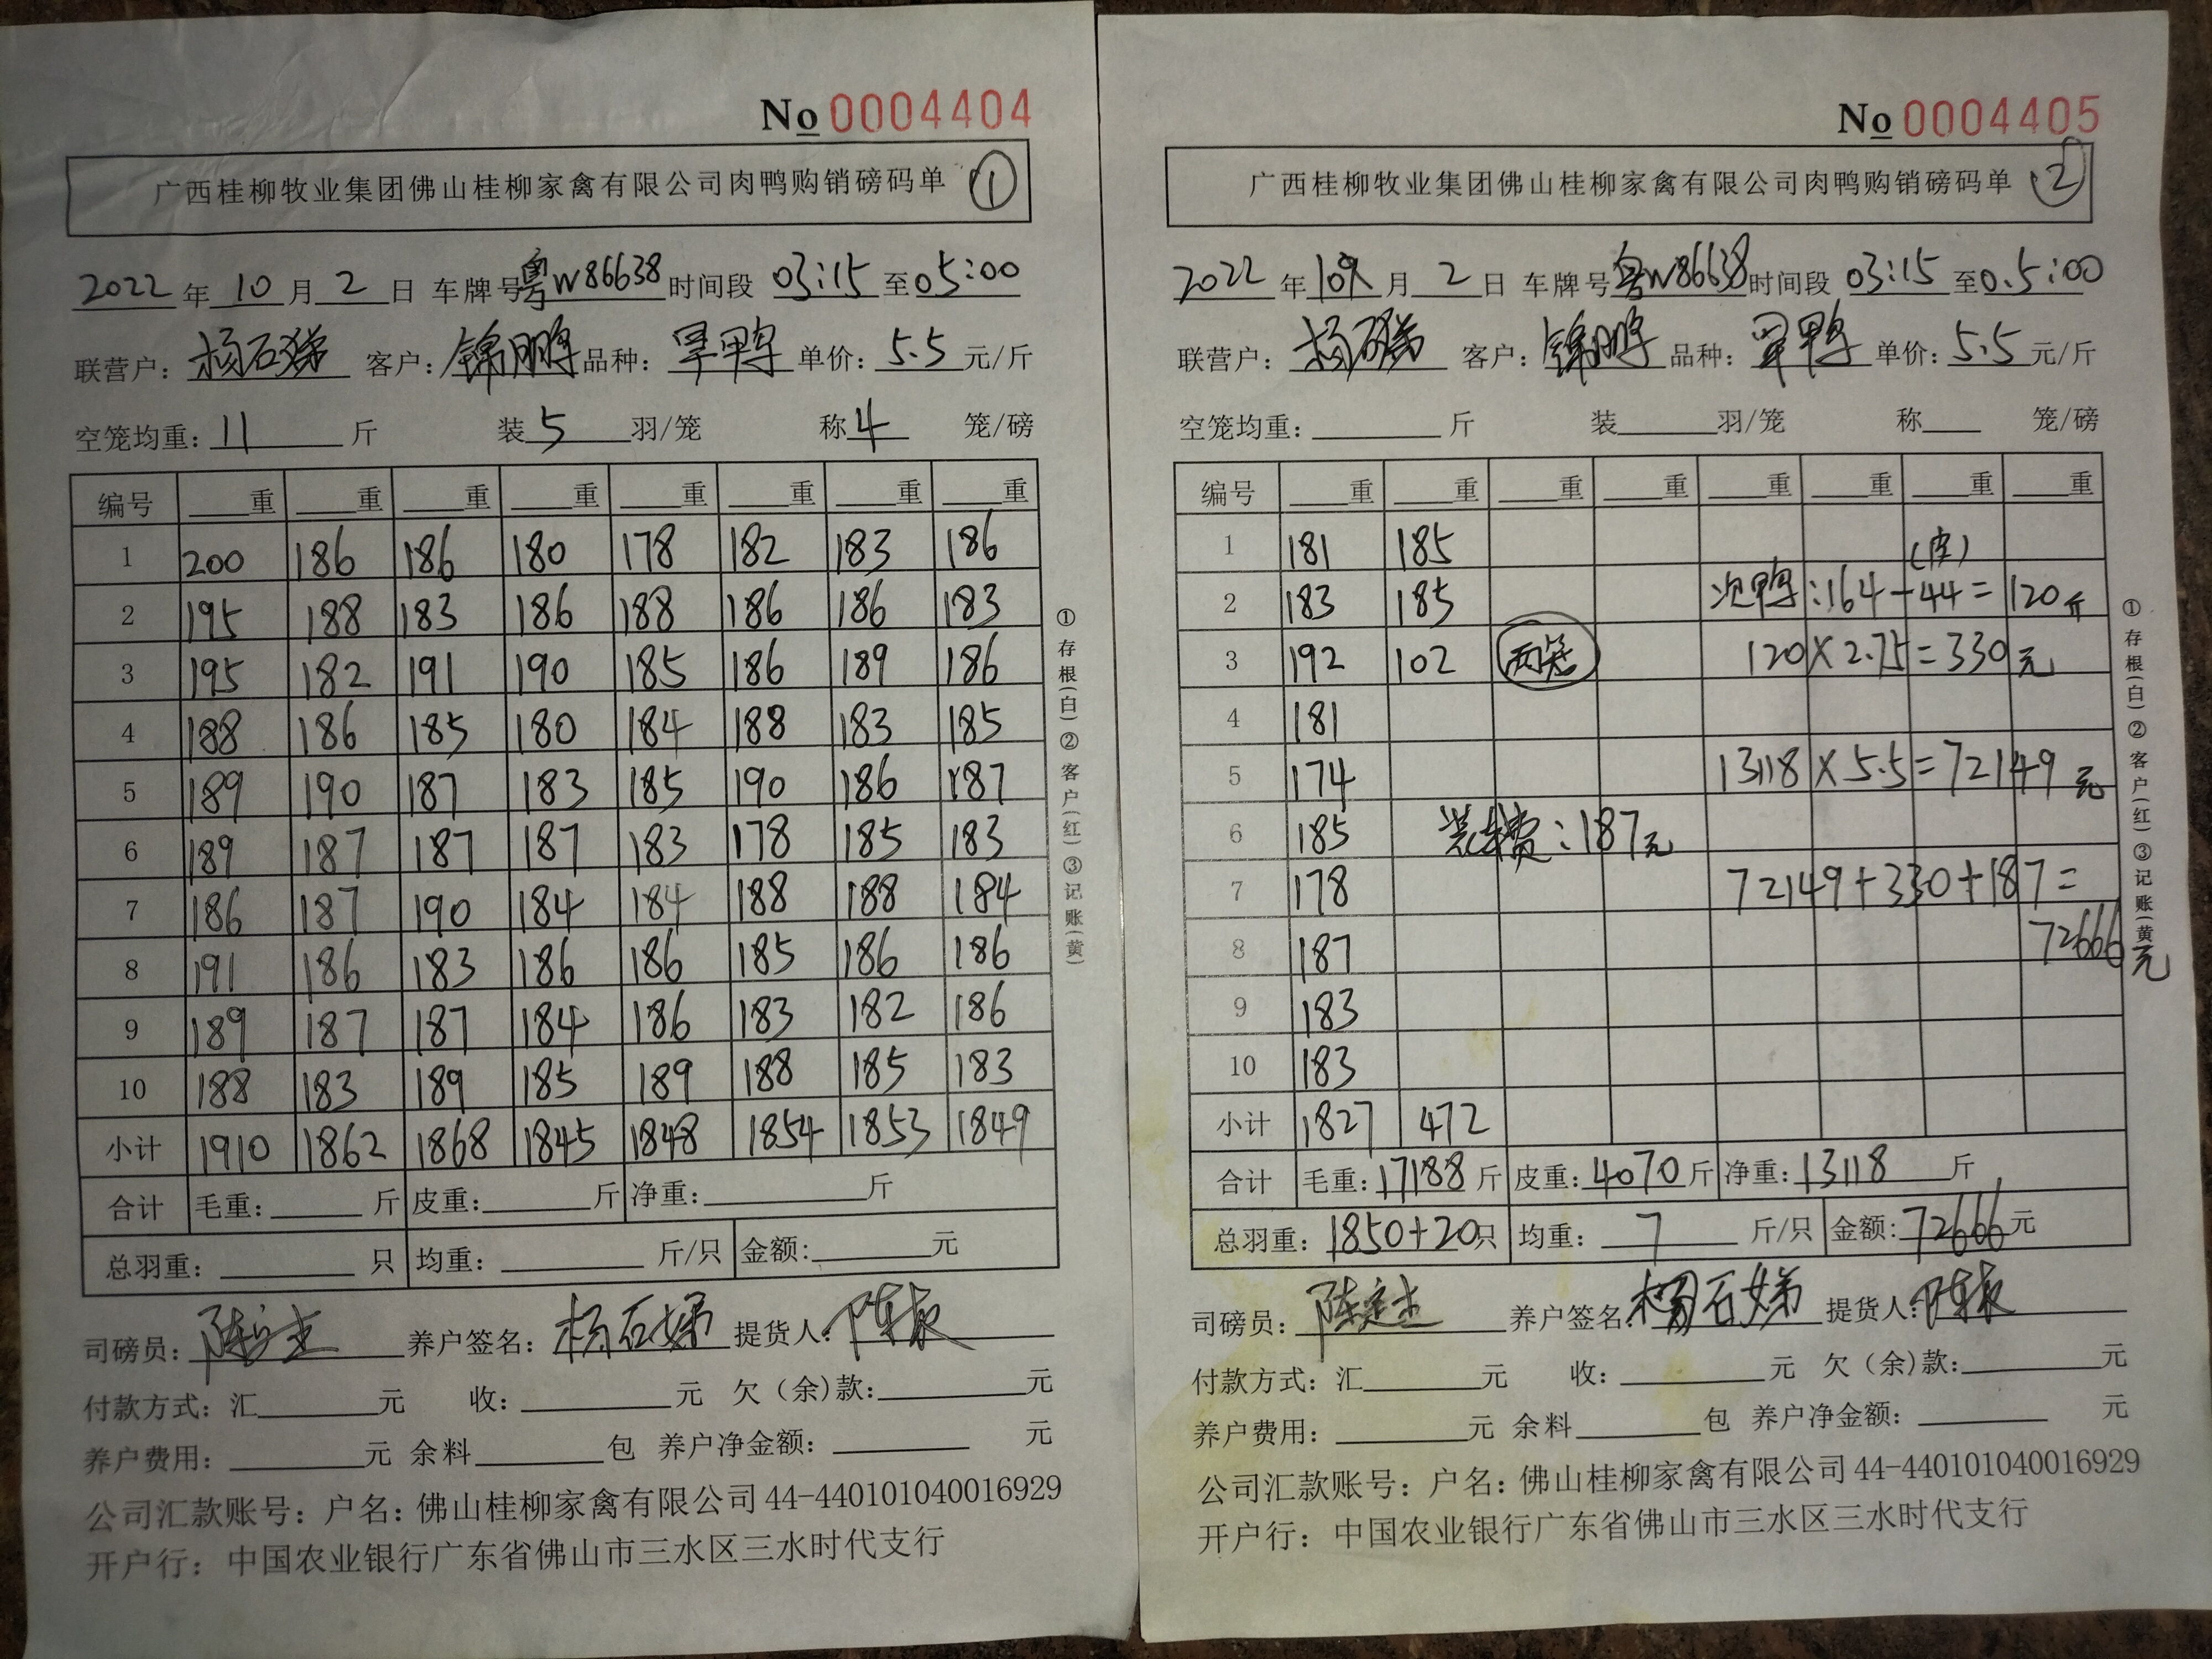 No 0004404
广西桂柳牧业集团佛山桂柳家禽有限公司肉鸭购销磅码单 ①
2022 年 10 月 2 日 车牌号 粤W86638 时间段 03:15 至 05:00
联营户: 杨石娣 客户: 锦鹏 品种: 旱鸭 单价: 5.5 元/斤
空笼均重: 11 斤 装 5 羽/笼 称 4 笼/磅
编号 重 重 重 重 重 重 重 重
1 200 186 186 180 178 182 183 186
2 195 188 183 186 188 186 186 183
3 195 182 191 190 185 186 189 186
4 188 186 185 180 184 188 183 185
5 189 190 187 183 185 190 186 187
6 189 187 187 187 183 178 185 183
7 186 187 190 184 184 188 188 184
8 191 186 183 186 186 185 186 186
9 189 187 187 184 186 183 182 186
10 188 183 189 185 189 188 185 183
小计 1910 1862 1868 1845 1848 1854 1853 1849
合计 毛重: 斤 皮重: 斤 净重: 斤
总羽重: 只 均重: 斤/只 金额: 元
司磅员: 养户签名: 杨石娣 提货人:
付款方式: 汇 元 收: 元 欠(余)款: 元
养户费用: 元 余料 包 养户净金额: 元
公司汇款账号: 户名: 佛山桂柳家禽有限公司 44-440101040016929
开户行: 中国农业银行广东省佛山市三水区三水时代支行
①存根(白)②客户(红)③记账(黄)
No 0004405
广西桂柳牧业集团佛山桂柳家禽有限公司肉鸭购销磅码单 ②
2022 年 10 月 2 日 车牌号 粤W86638 时间段 03:15 至 0.5:00
联营户: 杨石娣 客户: 锦鹏 品种: 旱鸭 单价: 5.5 元/斤
空笼均重: 斤 装 羽/笼 称 笼/磅
编号 重 重 重 重 重 重 重 重
1 181 185 (皮)
2 183 185 次鸭:164-44=120斤
3 192 102 两笼 120×2.75=330元
4 181
5 174 13118×5.5=72149元
6 185 装车费:187元
7 178 72149+330+187=
8 187 72666元
9 183
10 183
小计 1827 472
合计 毛重: 17188 斤 皮重: 4070 斤 净重: 13118 斤
总羽重: 1850+20 只 均重: 7 斤/只 金额: 72666 元
司磅员: 养户签名: 杨石娣 提货人:
付款方式: 汇 元 收: 元 欠(余)款: 元
养户费用: 元 余料 包 养户净金额: 元
公司汇款账号: 户名: 佛山桂柳家禽有限公司 44-440101040016929
开户行: 中国农业银行广东省佛山市三水区三水时代支行
①存根(白)②客户(红)③记账(黄)